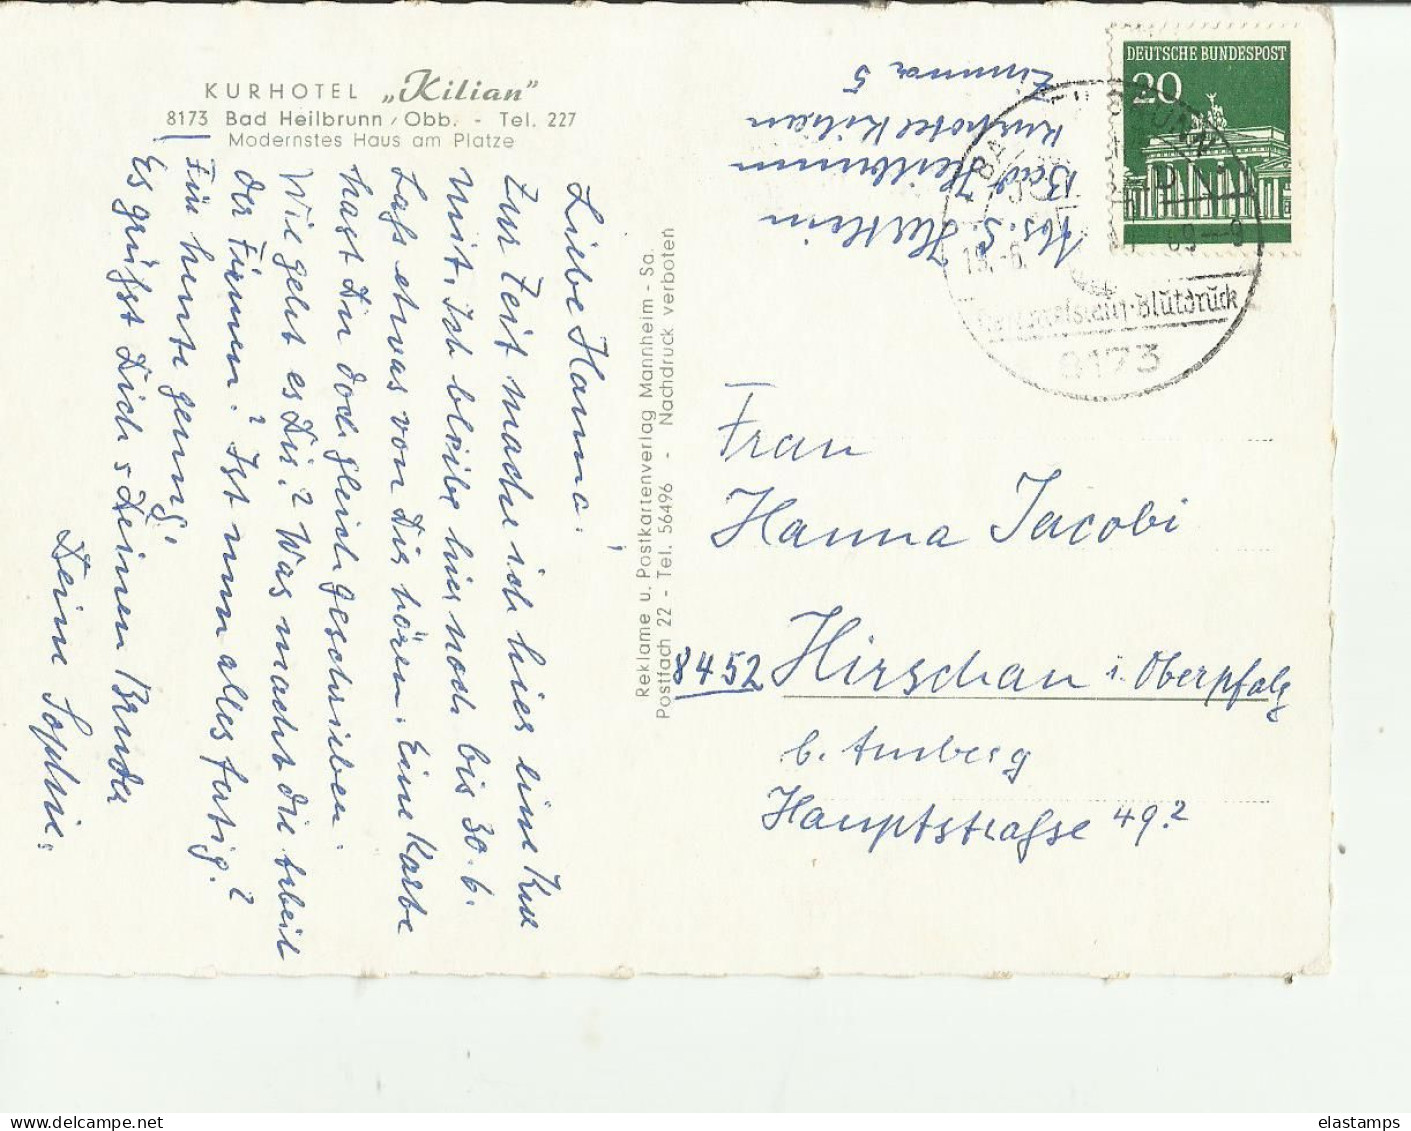 KURHOTEL „Kilian"
8173 Bad Heilbrunn/Obb. - Tel. 227
Modernstes Haus am Platze
Liebe Hanna!
Zur Zeit mache ich hier eine Kur
mit. Ich bleibe hier noch bis 30.6.
Laß etwas von Dir hören. Eine Karte
hast Du doch gleich geschrieben.
Wie geht es Dir? Was macht die Arbeit
der Firmen? Ist nun alles fertig?
Für heute genug.
Es grüßt Dich u. Deinen Bruder
Deine Sophie.
Reklame u. Postkartenverlag Mannheim - Sa.
Postfach 22 - Tel. 56496 - Nachdruck verboten
Abs. S.
Bad Heilbrunn
Kurhotel Kilian
Zimmer 5
DEUTSCHE BUNDESPOST
20
69-9
Blutdruck
8173
Frau
Hanna Jacobi
8452 Hirschau i. Oberpfalz
b. Amberg
Hauptstraße 49?
elastamps